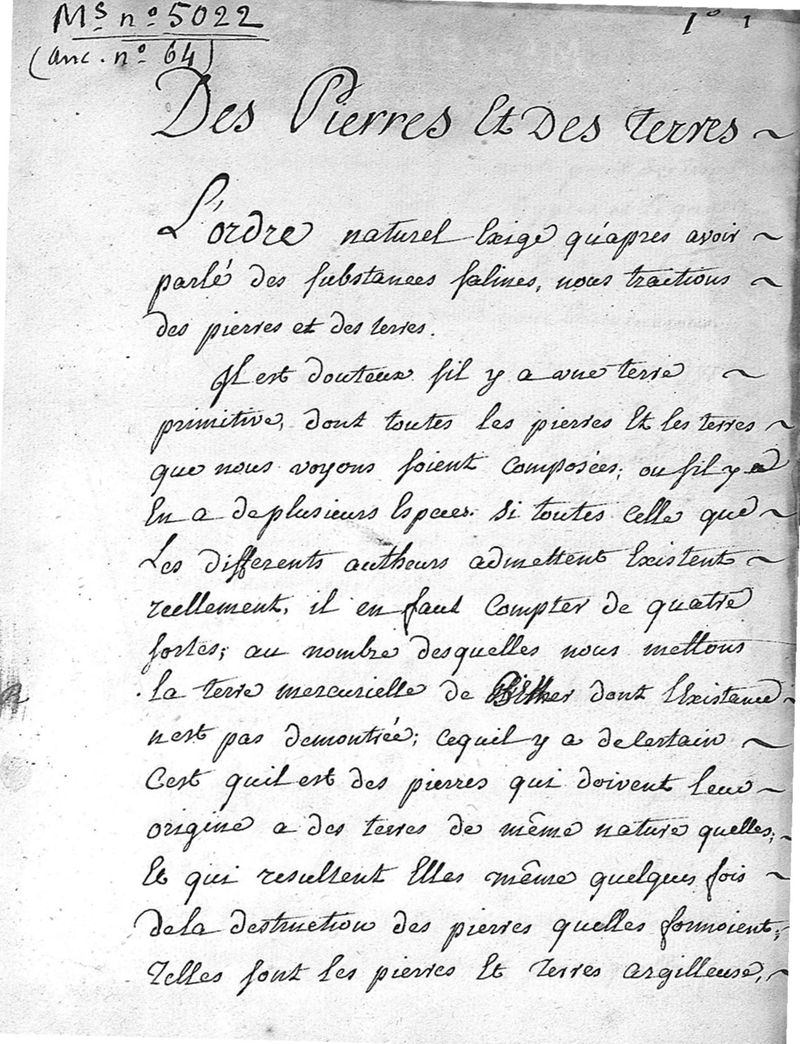 Ms nº 5022
(anc. nº 64)
1º 1
Des Pierres et Des terres ~
L'ordre naturel Exige qu'apres avoir ~
parlé des substances salines, nous traitions ~
des pierres et des terres.
Il est douteux s'il y a une terre ~
primitive, dont toutes les pierres Et les terres ~
que nous voyons soient Composées; ou s'il y
En a de plusieurs Especes. si toutes celle que ~
Les differents autheurs admettent Existent ~
reellement, il en faut Compter de quatre
sortes; au nombre desquelles nous mettons
la terre mercurielle de dont l'Existence ~
n'est pas demontrée; cequil y a de Certain ~
C'est quil est des pierres qui doivent leur ~
origine a des terres de même nature quelles; ~
Et qui resultent Elles même quelques fois ~
dela destruction des pierres quelles formoient; ~
Telles sont les pierres Et terres argilleuse, ~